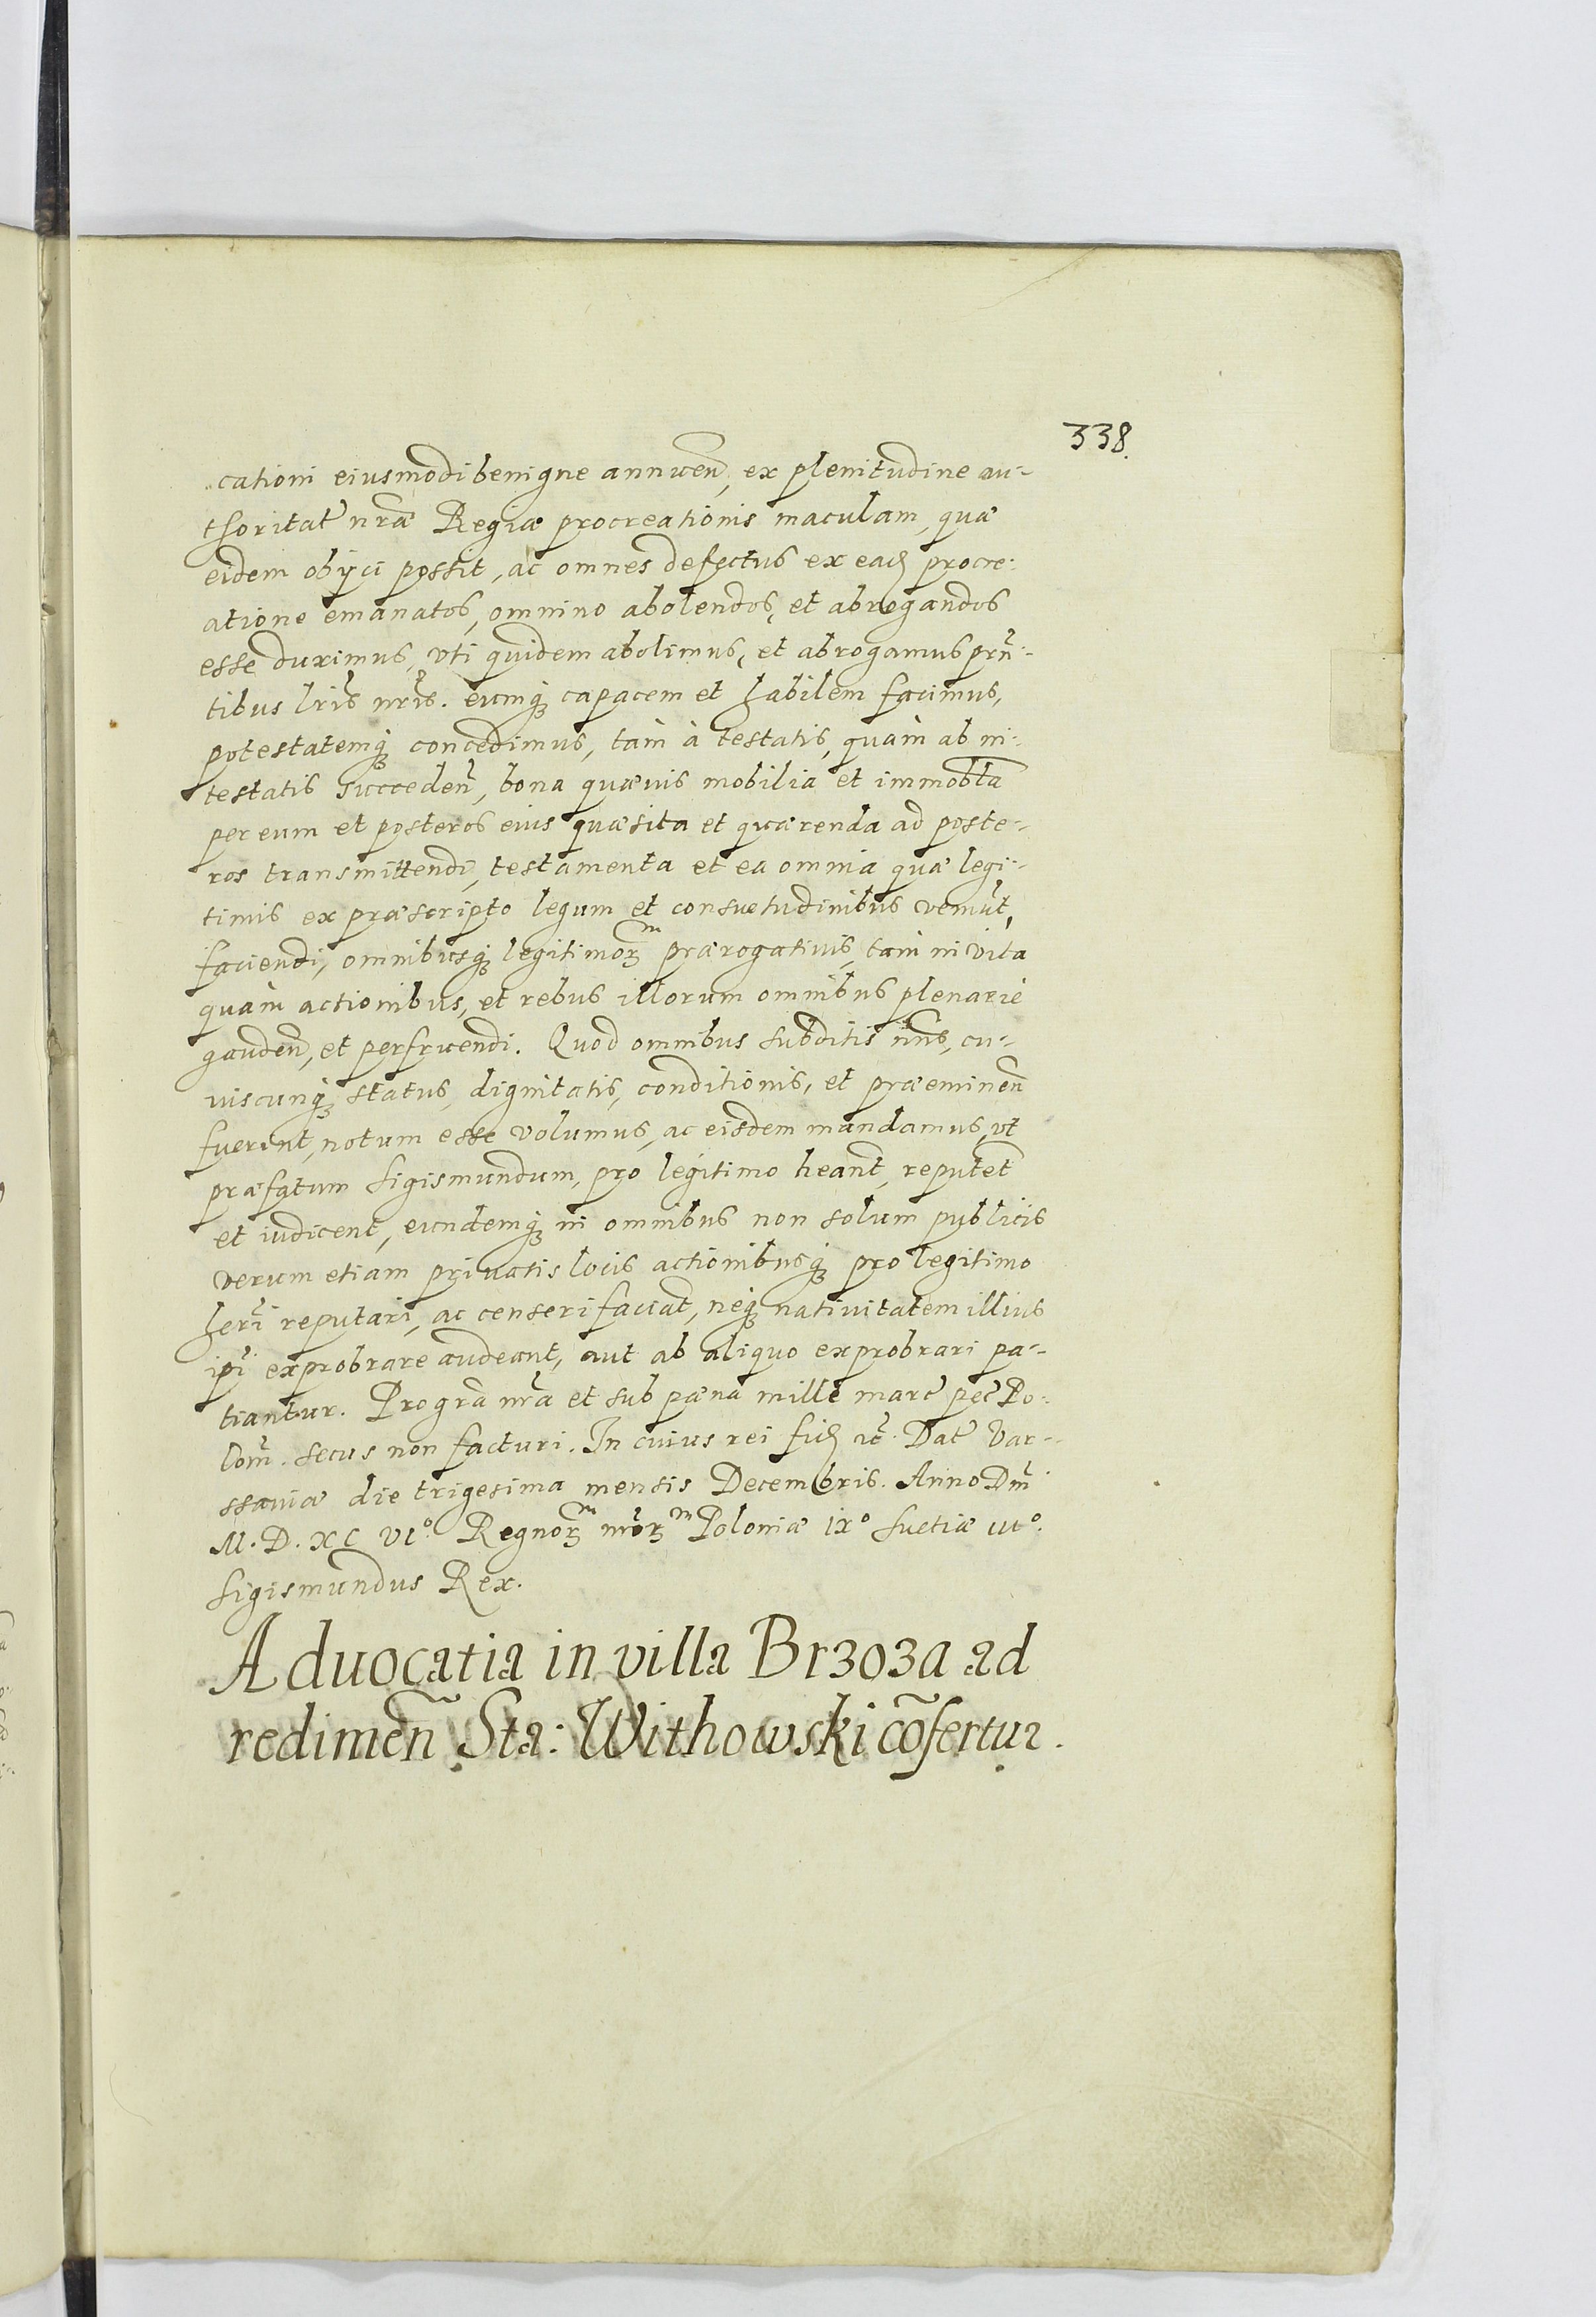 338.
cationi eiusmodi benigne annuen̄, ex plenitudine au-
thoritat̃ nr̃æ Regiæ procreationis maculam, quæ
eidem obijci possit, ac omnes defectus ex ead procre-
atione emanatos, omnino abolendos, et abrogandos
esse duximus, vti quidem abolimus, et abrogamus prñ-
tibus lr̃is nr̃is. eumq; capacem et habilem facimus,
potestatemq; concedimus, tam à testatis, quàm ab in-
testatis succeden̄, bona quæuis mobilia et immobl̃ia
per eum et posteros eius quæsita et quærenda ad poste-
ros transmittendi, testamenta et ea omnia quæ legi-
timis ex præscripto legum et consuetudinibus veniũt,
faciendi, omnibusq; legitimorᵐ prærogatiuis, tam in vita
quàm actionibus, et rebus illorum omnibus plenariè
gauden̄, et perfruendi. Quod omnibus subditis nr̃is, cu-
iuscunq; status, dignitatis, conditionis, et præeminen̄
fuerint, notum esse volumus, ac eisdem mandamus, vt
præfatum Sigismundum, pro legitimo heant̃, reputet̃
et iudicent, eundemq; in omnibus non solum publicis
verum etiam priuatis locis actionibusq; pro legitimo
her̃i reputari, ac censeri faciat̃, neq; natiuitatem illius
ip̃i exprobrare audeant, aut ab aliquo exprobrari pa-
tiantur. Pro gr̃a nr̃a et sub pæna mille marc̃ pec̃ Po-
lom̃. secus non facturi. In cuius rei fid etc̃. Dat̃ Var-
ssauiæ die trigesima mensis Decembris. Anno Dm̃
M. D. XC VIº. Regnorᵐ nr̃orᵐ Poloniæ IXº Suetiæ IIIº.
Sigismundus Rex.
Aduocatia in villa Brzoza ad
redimen̄ Sta: Withowski cõfertur.